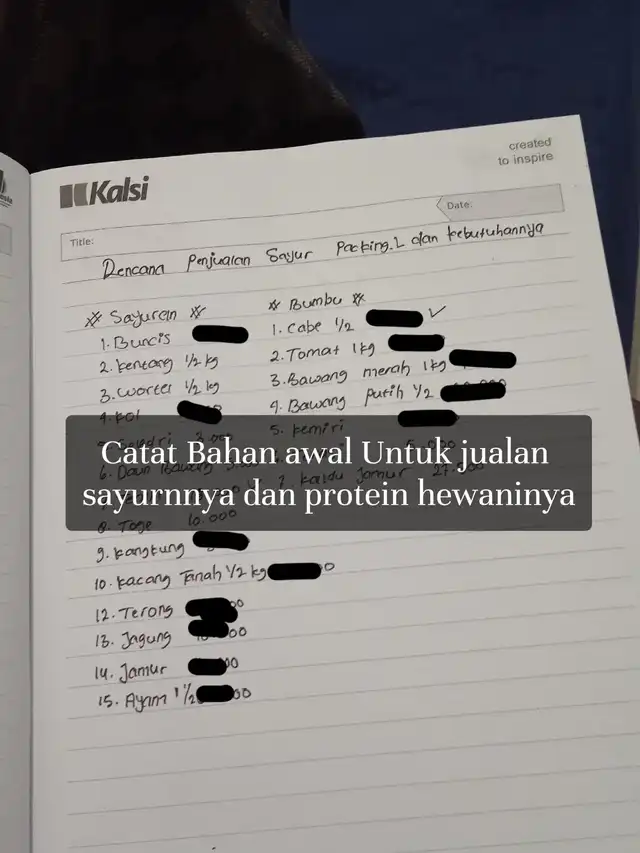 created
to inspire
Kalsi
Title:
Date:
Rencana Penjualan Sayur Packing.L dan kebutuhannya
※ Sayuran ※
1. Buncis
2. kentang 1/2 kg
3. worter 1/2 kg
4. kol
5. Seledri 3.000
6. Daun Bawang
8. Toge 10.000
9. kangkung
10. kacang Tanah 1/2 kg
12. Terong
13. Jagung
14. Jamur
15. Ayam 1 1/2
※ Bumbu ※
1. Cabe 1/2 ✓
2. Tomat 1 kg
3. Bawang merah 1 kg
4. Bawang putih 1/2
5. kemiri
7. kaldu Jamur
Catat Bahan awal Untuk jualan
sayurnnya dan protein hewaninya